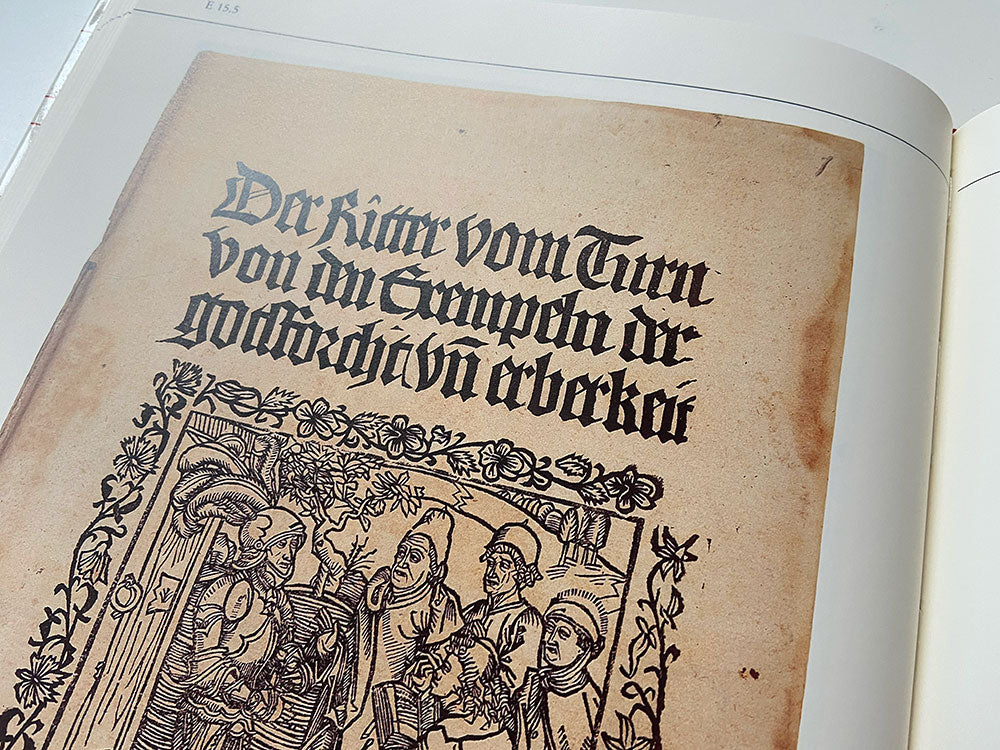 E 15,5
Der Ritter vom Turn
von den Exempeln der
gotsforcht vñ erberkeit